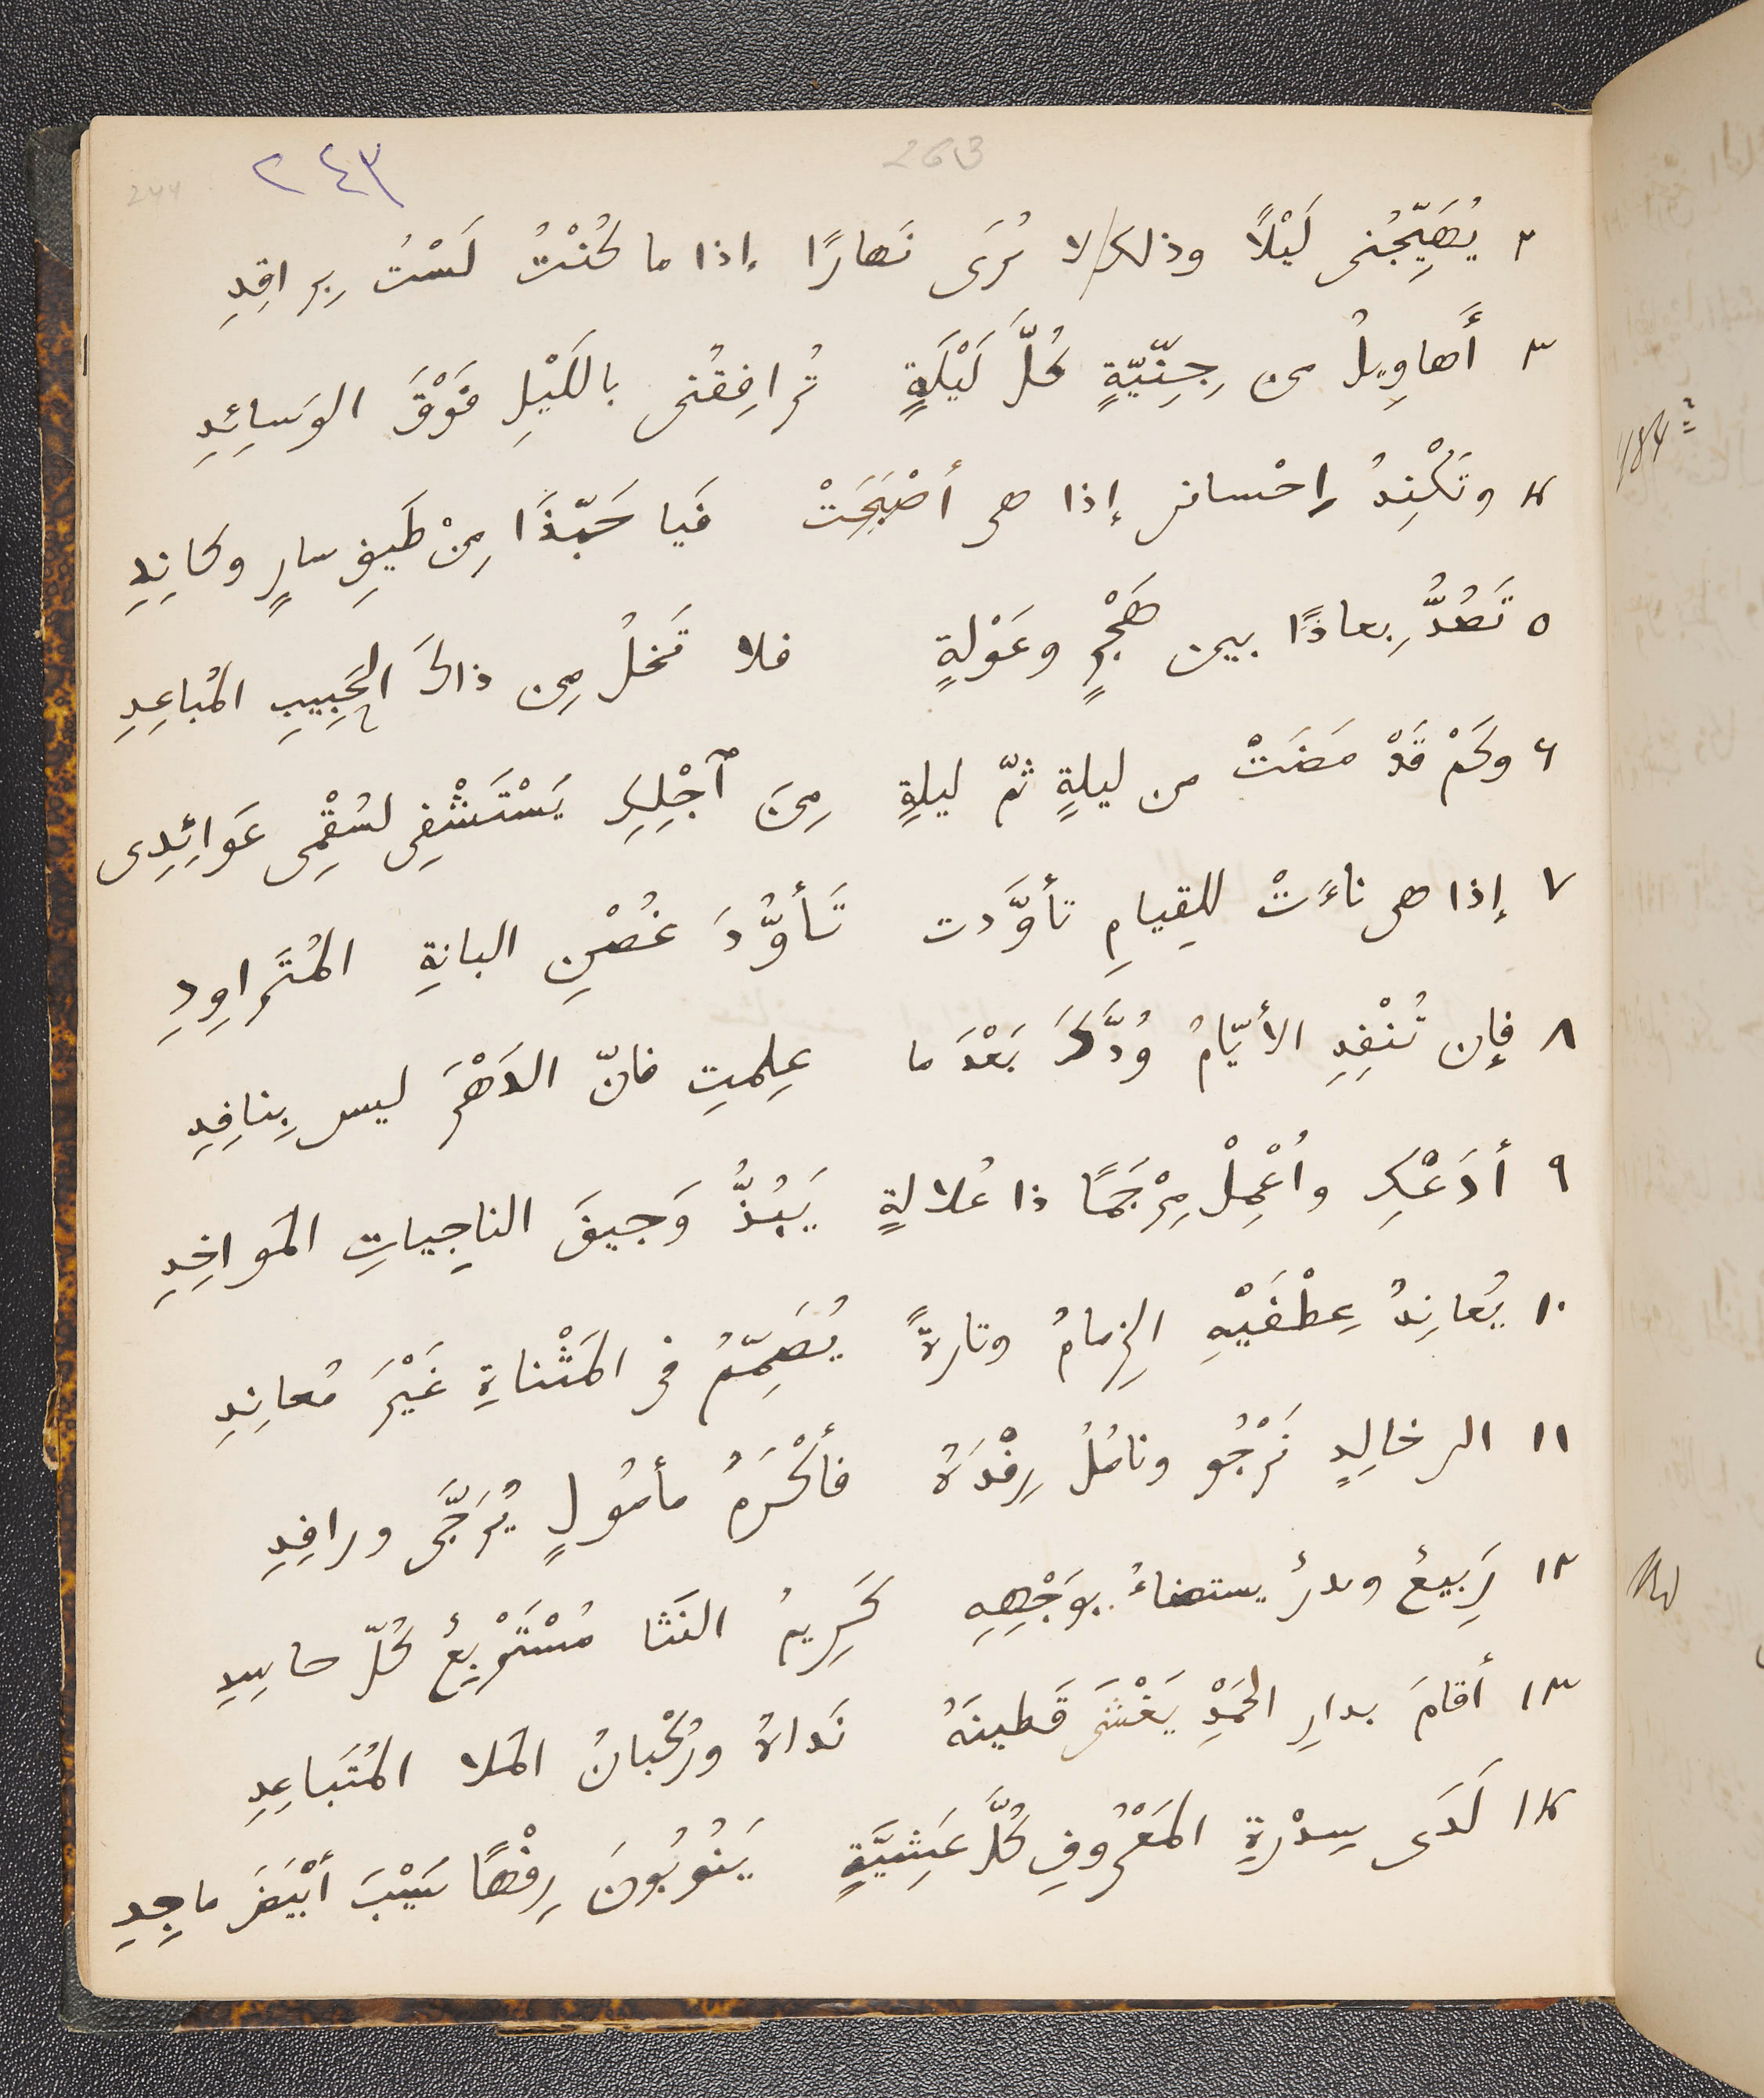 263
٢٤٣
244
٢ يُهَيِّجُنى لَيْلًا وذلك لا نُرَى نَهارًا إذا ما كُنْتُ لَسْتُ بِراقِدِ
٣ أَهاوِيلُ من جِنِّيّةٍ كُلَّ لَيْلَةٍ تُرافِقُنى باللَيْلِ فَوْقَ الوَسائِدِ
٤ وتَكْنِدُ إحْسانى إذا هى أَصْبَحَتْ فَيا حَبّذَا مِنْ طَيفِ سارٍ وكانِدِ
٥ تَصُدُّ بِعادًا بين هَجْرٍ وعَوْلةٍ فلا تَخلُ مِن ذاكَ الحَبِيبِ المُباعِدِ
٦ وكَمْ قَدْ مَضَتْ من ليلةٍ ثمّ ليلةٍ مِنَ ٱجْلِكِ يَسْتَشْفِى لسُقْمِى عَوائِدِى
٧ إذا هى ناءَتْ للقِيامِ تأوَّدت تَأوُّدَ غُصْنِ البانةِ المُتَراوِدِ
٨ فإن تُنْفِدِ الأيّامُ وُدَّكَ بَعْدَ ما عِلِمتِ فانّ الدَهْرَ ليس بِنافِدِ
٩ أدَعْكِ وأُعْمِلْ مِرْجَمًا ذا عُلالةٍ يَبُذُّ وَجيفَ الناجِياتِ المَواخِدِ
١٠ يُعانِدُ عِطْفَيْهِ الزِمامُ وتارةً يُصَمِّمُ فى المَثْناةِ غَيْرَ مُعانِدِ
١١ الى خالِدٍ نَرْجُو ونامُلُ رِفْدَهُ فأكْرَمُ مأمُولٍ يُرَجَّى ورافِدِ
١٢ رَبِيعٌ وبدرٌ يستضاءُ بوَجْهِهِ كَرِيمُ النَثَا مُسْتَرْبِعٌ كُلّ حاسِدِ
١٣ أقامَ بدارِ الحَمْدِ يَغْشَى قَطينَهُ نَداهُ ورُكْبانُ المَلا المُتَباعِدِ
١٤ لَدَى سِدْرةِ المَعْرُوفِ كُلَّ عَشِيَّةٍ يَنُوبُونَ رِفْهًا سَيْبَ أَبْيَضَ ماجِدِ